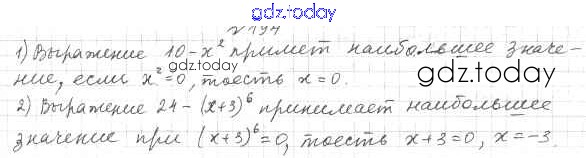 gdz.today
№ 194
1) Выражение 10 - x² примет наибольшее значе-
ние, если x² = 0, тоесть x = 0.
gdz.today
gdz.today
2) Выражение 24 - (x+3)⁶ принимает наибольшее
значение при (x+3)⁶ = 0, тоесть x+3 = 0, x = -3.
gdz.today